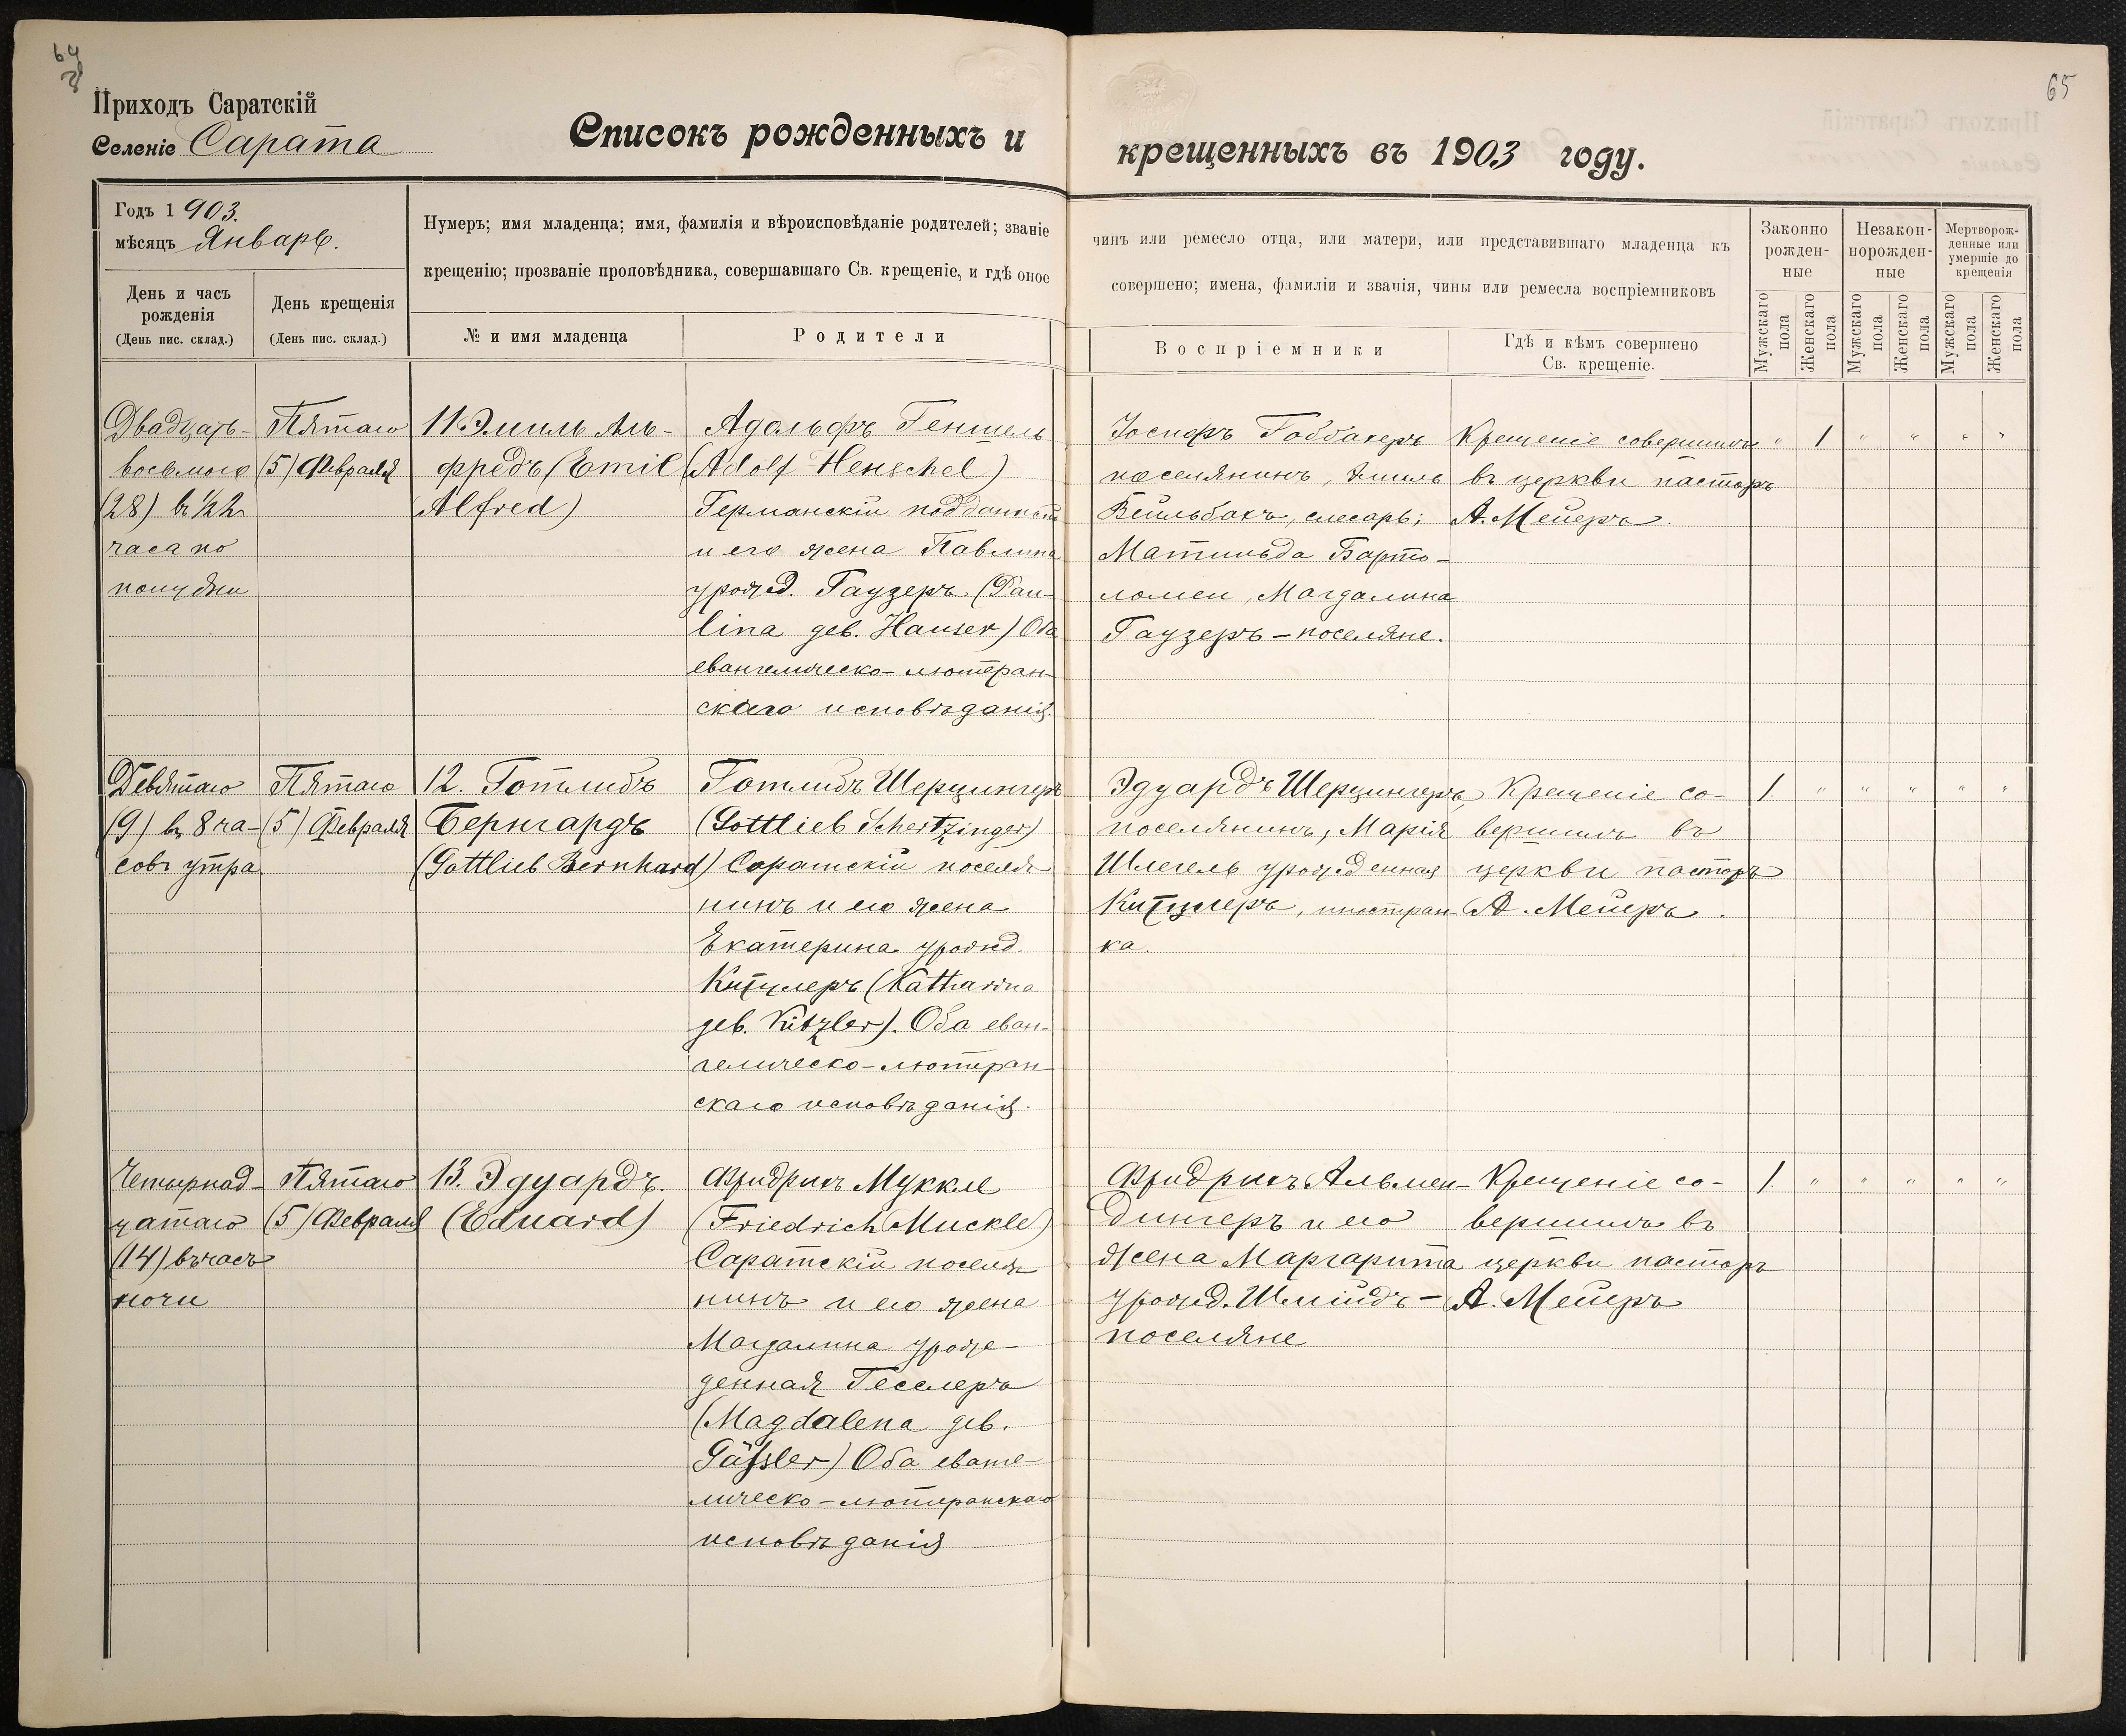 64
65
Приходъ Саратскій
Селеніе Сарата
Списокъ рожденныхъ и крещенныхъ въ 1903 году.
Годъ 1903.
мѣсяцъ Январь.
Нумеръ; имя младенца; имя, фамилія и вѣроисповѣданіе родителей; званіе
чинъ или ремесло отца, или матери, или представившаго младенца къ
крещенію; прозваніе проповѣдника, совершавшаго Св. крещеніе, и гдѣ оное
совершено; имена, фамиліи и званія, чины или ремесла воспріемниковъ
День и часъ
рожденія
(День пис. склад.)
День крещенія
(День пис. склад.)
№ и имя младенца
Родители
Воспріемники
Гдѣ и кѣмъ совершено
Св. крещеніе.
Законно
рожден-
ные
Незакон-
норожден-
ные
Мертворож-
денные или
умершіе до
крещенія
Мужскаго
пола
Женскаго
пола
Мужскаго
пола
Женскаго
пола
Мужскаго
пола
Женскаго
пола
Двадцать-
восьмого
(28) въ ½ 2
часа по
полудни
Пятаго
(5) Февраля
11. Эмиль Аль-
фредъ (Emil
Alfred)
Адольфъ Геншель
(Adolf Henschel)
Германскій подданный
и его жена Павлина
урожд. Гаузеръ (Pau-
lina geb. Hauser) Оба
евангелическо-лютеран-
скаго исповѣданія.
Іосифъ Гоббахеръ
поселянинъ, Эмиль
Бейльбахъ, слесарь;
Матильда Барто-
ломеи, Магдалина
Гаузеръ - поселяне.
Крещеніе совершилъ
въ церкви пасторъ
А. Мейеръ.
" 1 " " " "
Девятаго
(9) въ 8 ча-
совъ утра
Пятаго
(5) Февраля
12. Готлибъ
Бернгардъ
(Gottlieb Bernhard)
Готлибъ Шерцингеръ
(Gottlieb Schertzinger)
Саратскій поселя
нинъ и его жена
Екатерина урожд.
Китцлеръ (Katharina
geb. Kitzler). Оба еван-
гелическо-лютеран
скаго исповѣданія.
Эдуардъ Шерцингеръ,
поселянинъ, Марія
Шлегель урожденная
Китцлеръ, иностран
ка.
Крещеніе со-
вершилъ въ
церкви пасторъ
А. Мейеръ.
1. " " " " "
Четырнад-
цатаго
(14) въ часъ
ночи
Пятаго
(5) Февраля
13. Эдуардъ.
(Eduard)
Фридрихъ Муккле
(Friedrich Muckle)
Саратскій поселя
нинъ и его жена
Магдалина урож-
денная Гесслеръ
(Magdalena geb.
Gäßler) Оба еванге-
лическо-лютеранскаго
исповѣданія
Фридрихъ Альмен-
дингеръ и его
жена Маргарита
урожд. Шмидъ -
поселяне
Крещеніе со-
вершилъ въ
церкви пасторъ
А. Мейеръ
1. " " " " "